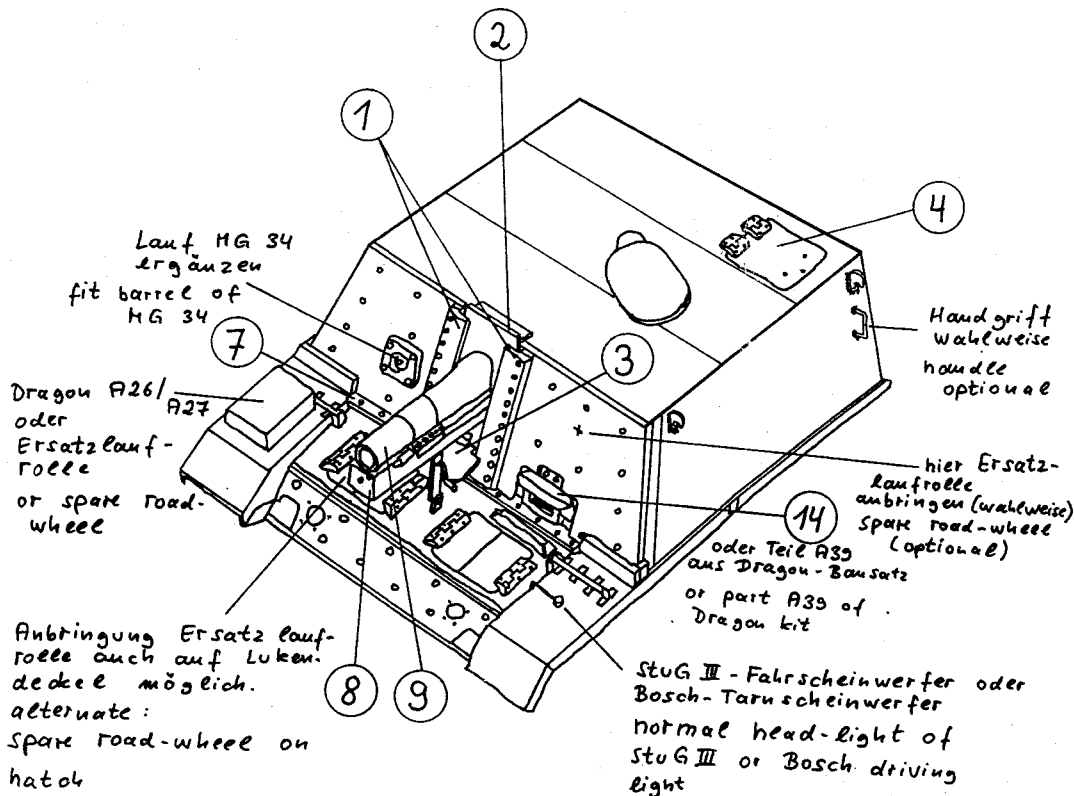 2
1
4
Lauf MG 34
ergänzen
fit barrel of
MG 34
7
3
Handgriff
wahlweise
handle
optional
Dragon A26/
A27
oder
Ersatzlauf-
rolle
or spare road-
wheel
hier Ersatz-
laufrolle
anbringen (wahlweise)
spare road-wheel
(optional)
14
oder Teil A39
aus Dragon-Bausatz
or part A39 of
Dragon kit
Anbringung Ersatzlauf-
rolle auch auf Luken-
deckel möglich.
alternate:
spare road-wheel on
hatch
8
9
StuG III-Fahrscheinwerfer oder
Bosch-Tarnscheinwerfer
normal head-light of
StuG III or Bosch driving
light